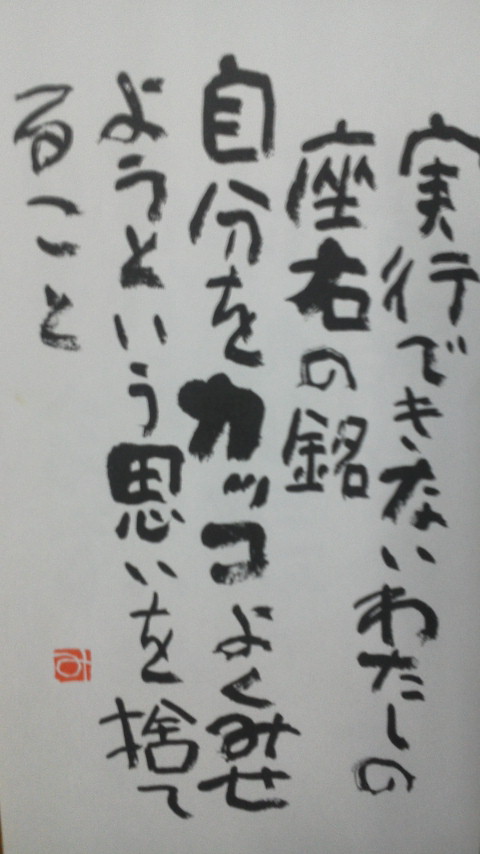 実行できないわたしの
座右の銘
自分をカッコよくみせ
ようという思いを捨て
ること